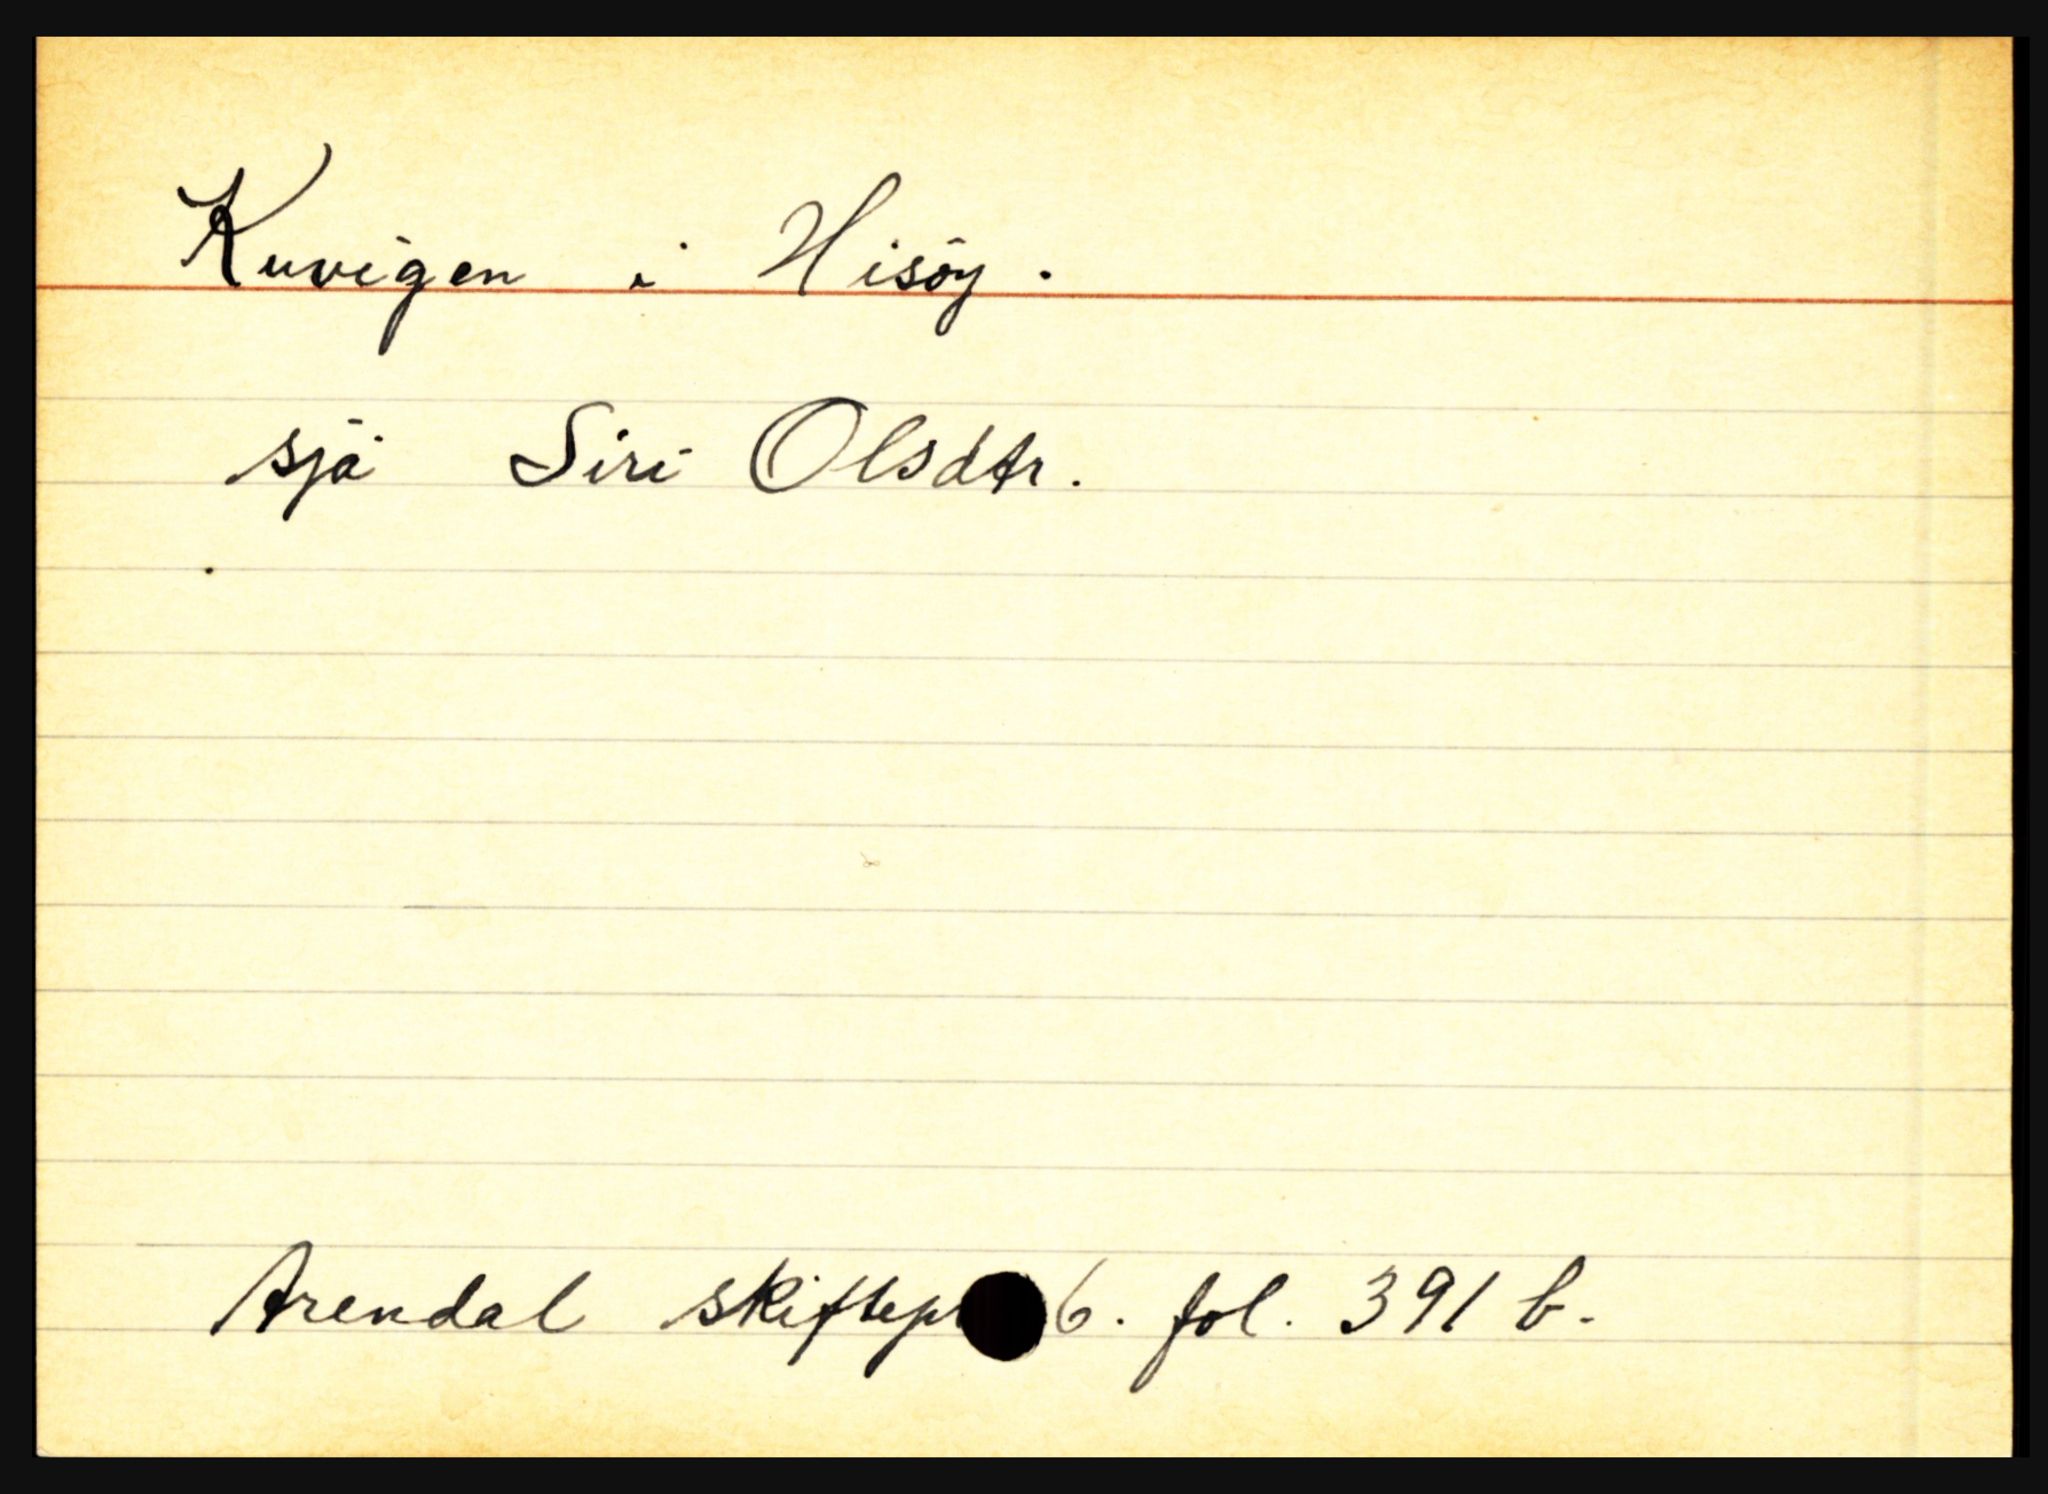 Kuvigen i Hisöy.
sjå Siri Olsdtr.
Arendal skiftepr 6. fol. 391 b.